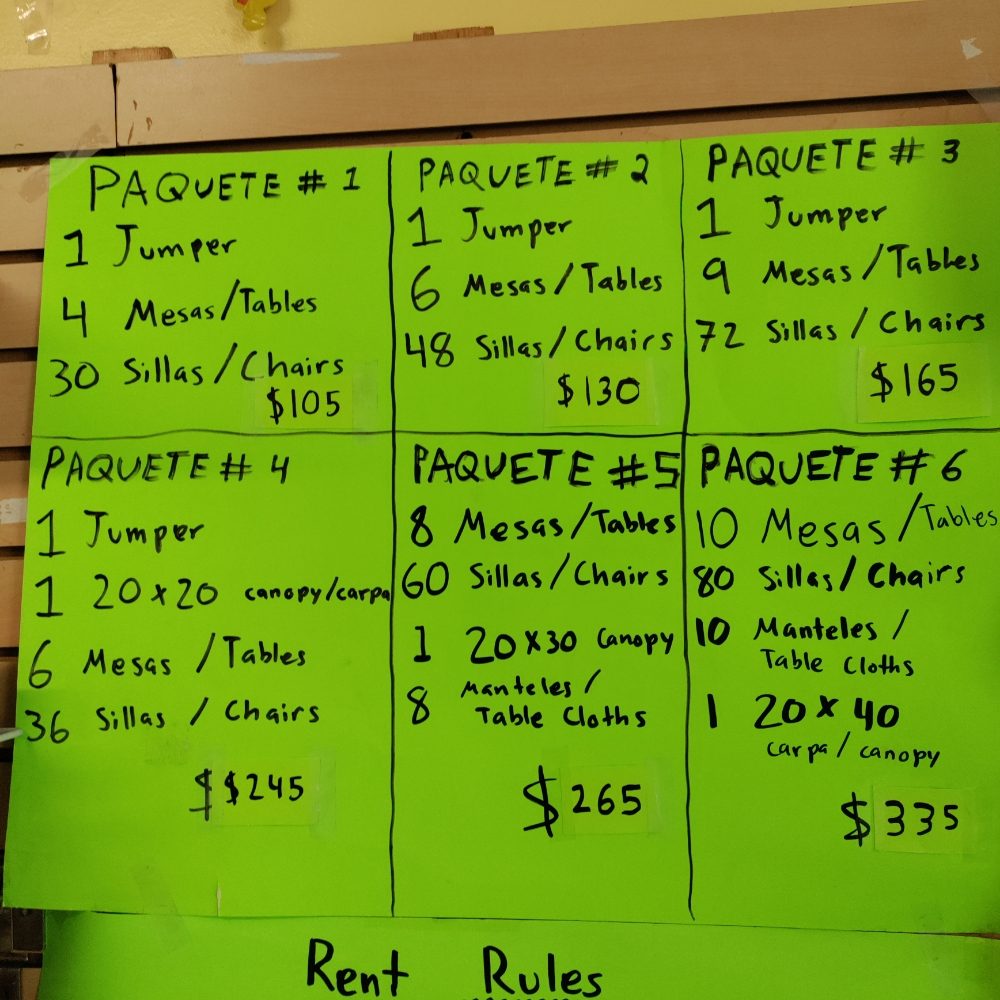 PAQUETE # 1
1 Jumper
4 Mesas/Tables
30 Sillas/Chairs
$105
PAQUETE # 2
1 Jumper
6 Mesas/Tables
48 Sillas/Chairs
$130
PAQUETE # 3
1 Jumper
9 Mesas/Tables
72 Sillas/Chairs
$165
PAQUETE # 4
1 Jumper
1 20x20 canopy/carpa
6 Mesas/Tables
36 Sillas / Chairs
$ $245
PAQUETE #5
8 Mesas/Tables
60 Sillas/Chairs
1 20x30 Canopy
8 Manteles/
Table Cloths
$265
PAQUETE # 6
10 Mesas/Tables
80 Sillas/Chairs
10 Manteles/
Table Cloths
1 20 x 40
carpa/canopy
$335
Rent Rules